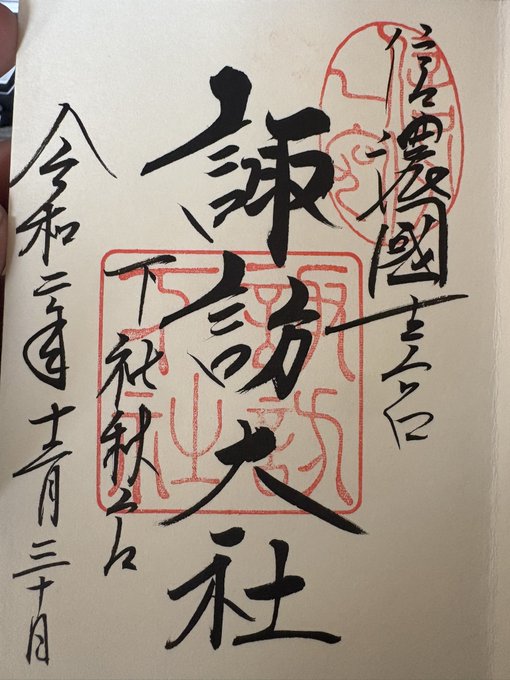 信濃國一之宮
諏訪大社
下社秋宮
令和二年十二月三十日